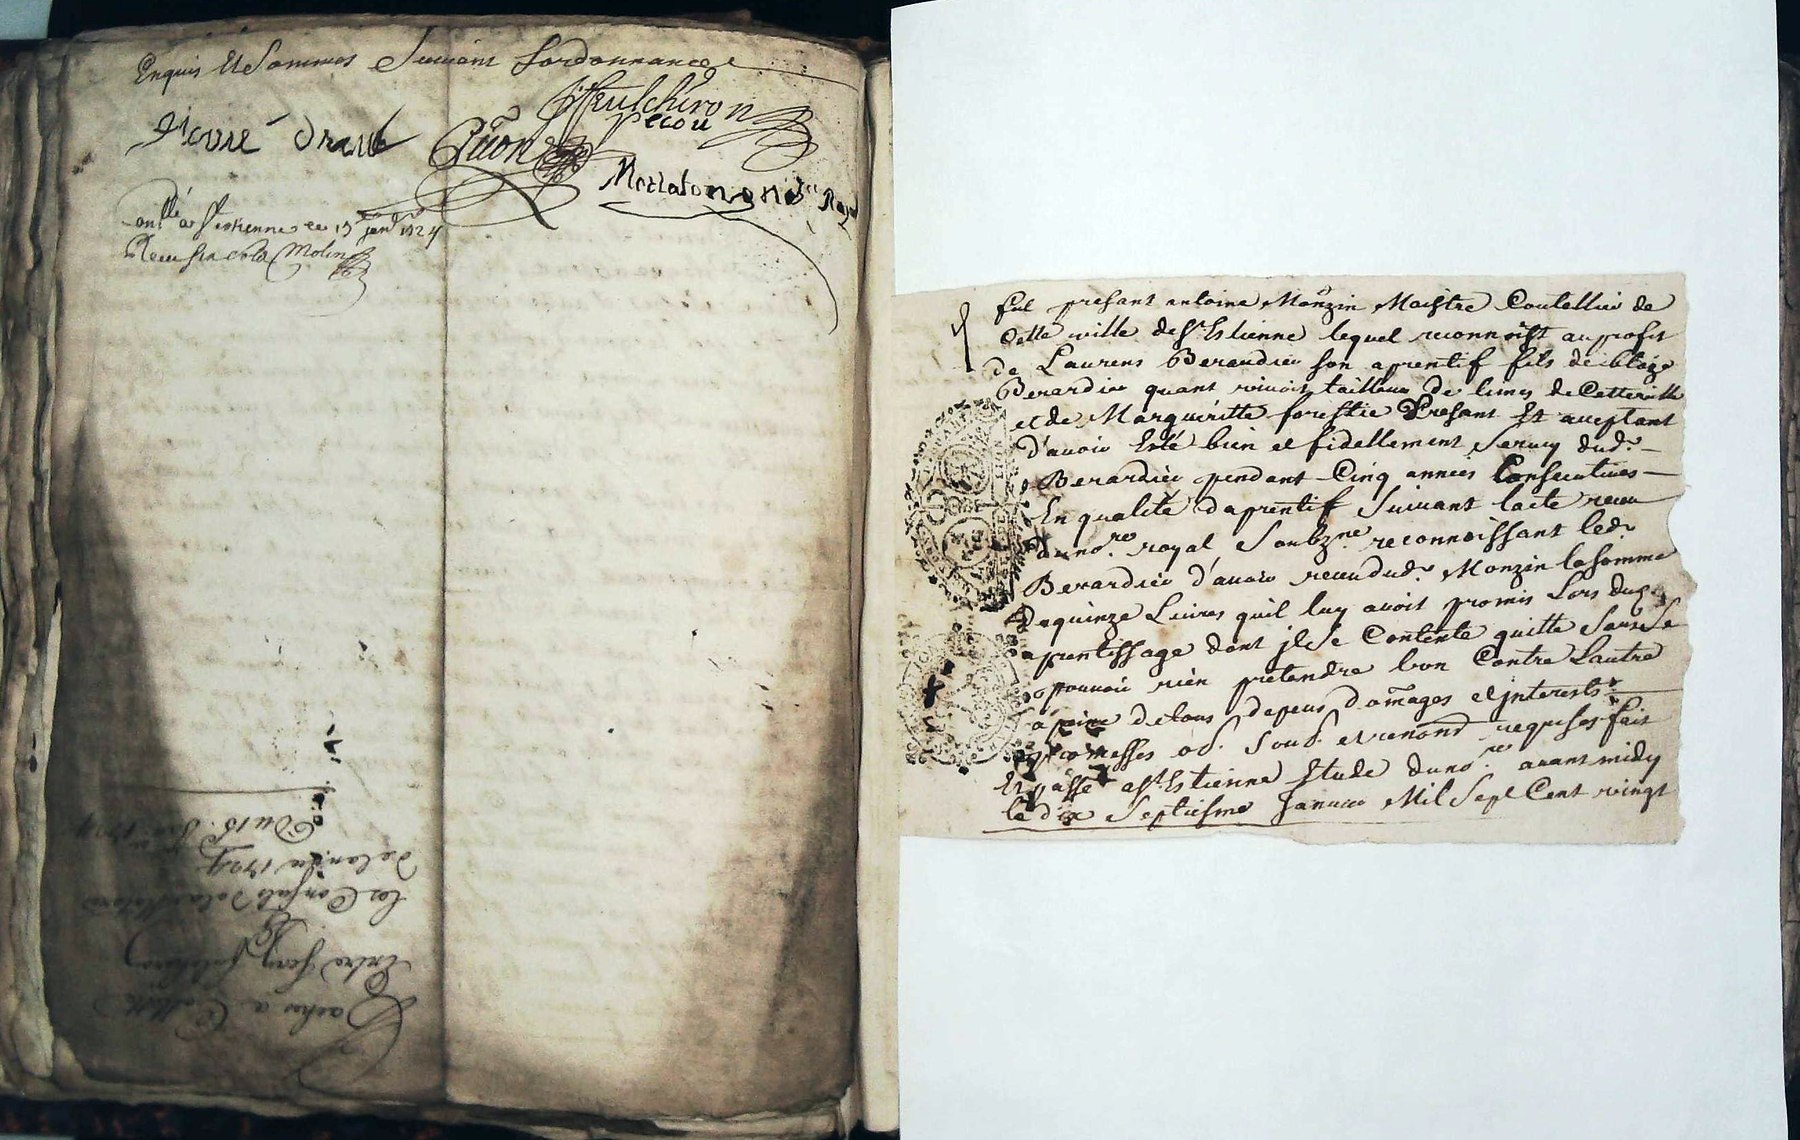 Enquis Et Sommes Suivant Lordonnance
pierre
a St estienne le 15 janv 1724
Molin
fut presant antoine Monzin Maistre Coutellier de
Cette ville de St Estienne lequel reconnoist au profit
de Laurens Berardier son aprentif fils de blaize
Berardier quant vivoit tailleur de limes de Cette ville
et de Marguéritte forestie Presant Et aceptant
d'avoir Esté bien et fidellement Servy dud.
Berardier pendant Cinq années Consecutives
En qualité d'aprentif Suivant lacte receu
du no.re royal Soubz.ne reconnoissant led.
Berardier d'avoir receu dud. Monzin la somme
De quinze Livres quil luy avoit promis Lors dud.
aprentissage dont jl Se Contente quitte Sans Se
pouvoir rien pretendre lun Contre Lautre
á peine de tous depens domages et jnterests
promesses ob. Soub. et renond requises fait
Et passé a St Estienne Etude du no.re avant midy
le dix Septiesme Janvier Mil Sept Cent vingt
Entre
les Consuls
de lannée 1724
Du 15. Jan. 1724